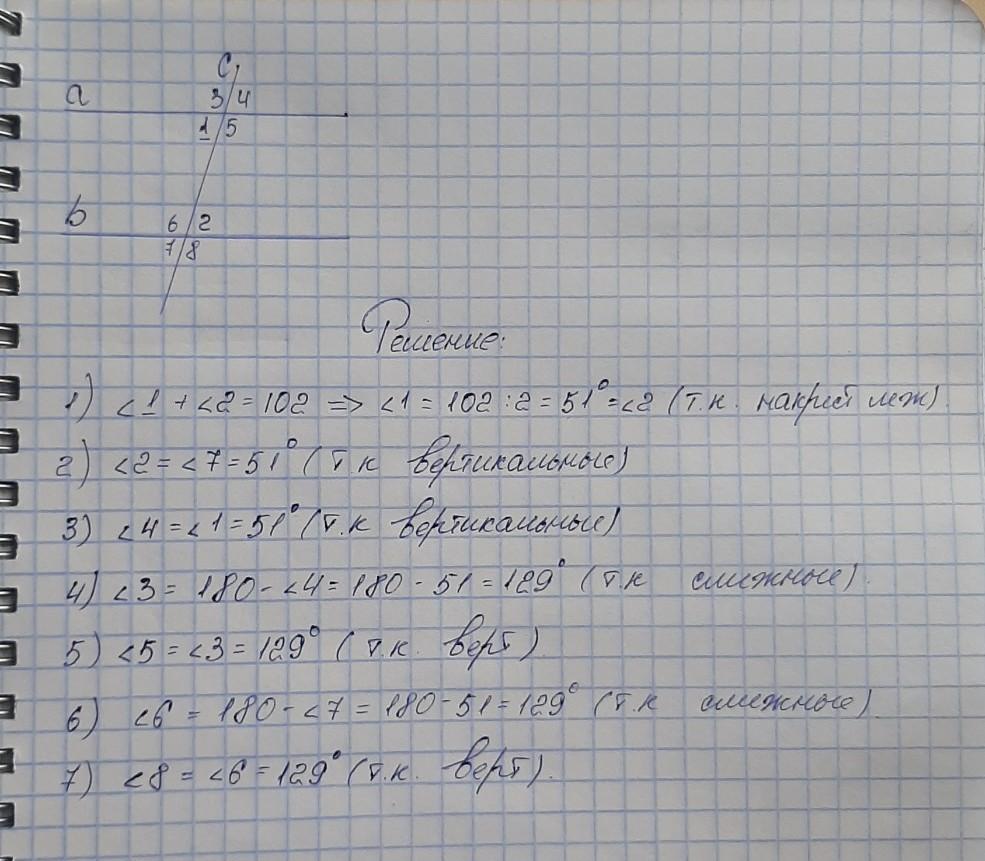 c
a
3 4
1 5
b
6 2
7 8
Решение:
1) <1 + <2 = 102 => <1 = 102 : 2 = 51° = <2 (т.к. накрест леж).
2) <2 = <7 = 51° (т.к вертикальные)
3) <4 = <1 = 51° (т.к вертикальные)
4) <3 = 180 - <4 = 180 - 51 = 129° (т.к смежные).
5) <5 = <3 = 129° (т.к. верт)
6) <6 = 180 - <7 = 180 - 51 = 129° (т.к смежные).
7) <8 = <6 = 129° (т.к. верт).